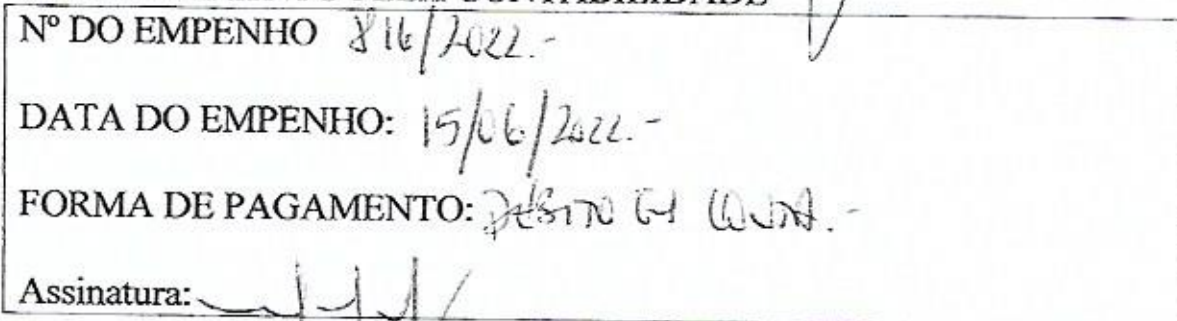 CONTABILIDADE
Nº DO EMPENHO 816/2022.-
DATA DO EMPENHO: 15/06/2022.-
FORMA DE PAGAMENTO: DÉBITO EM CONTA.-
Assinatura: